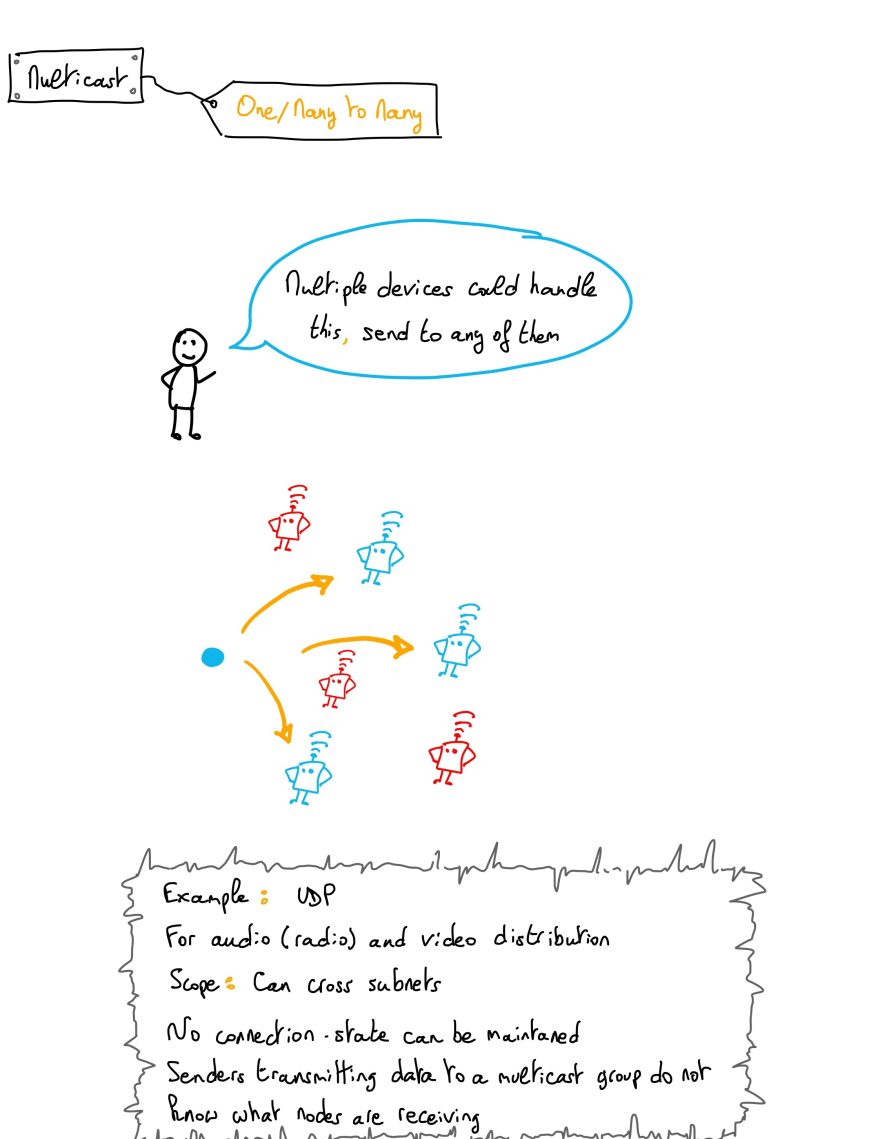 Multicast
One/Many to Many
Multiple devices could handle
this, send to any of them
Example: UDP
For audio (radio) and video distribution
Scope: Can cross subnets
No connection-state can be maintaned
Senders transmitting data to a multicast group do not
know what nodes are receiving